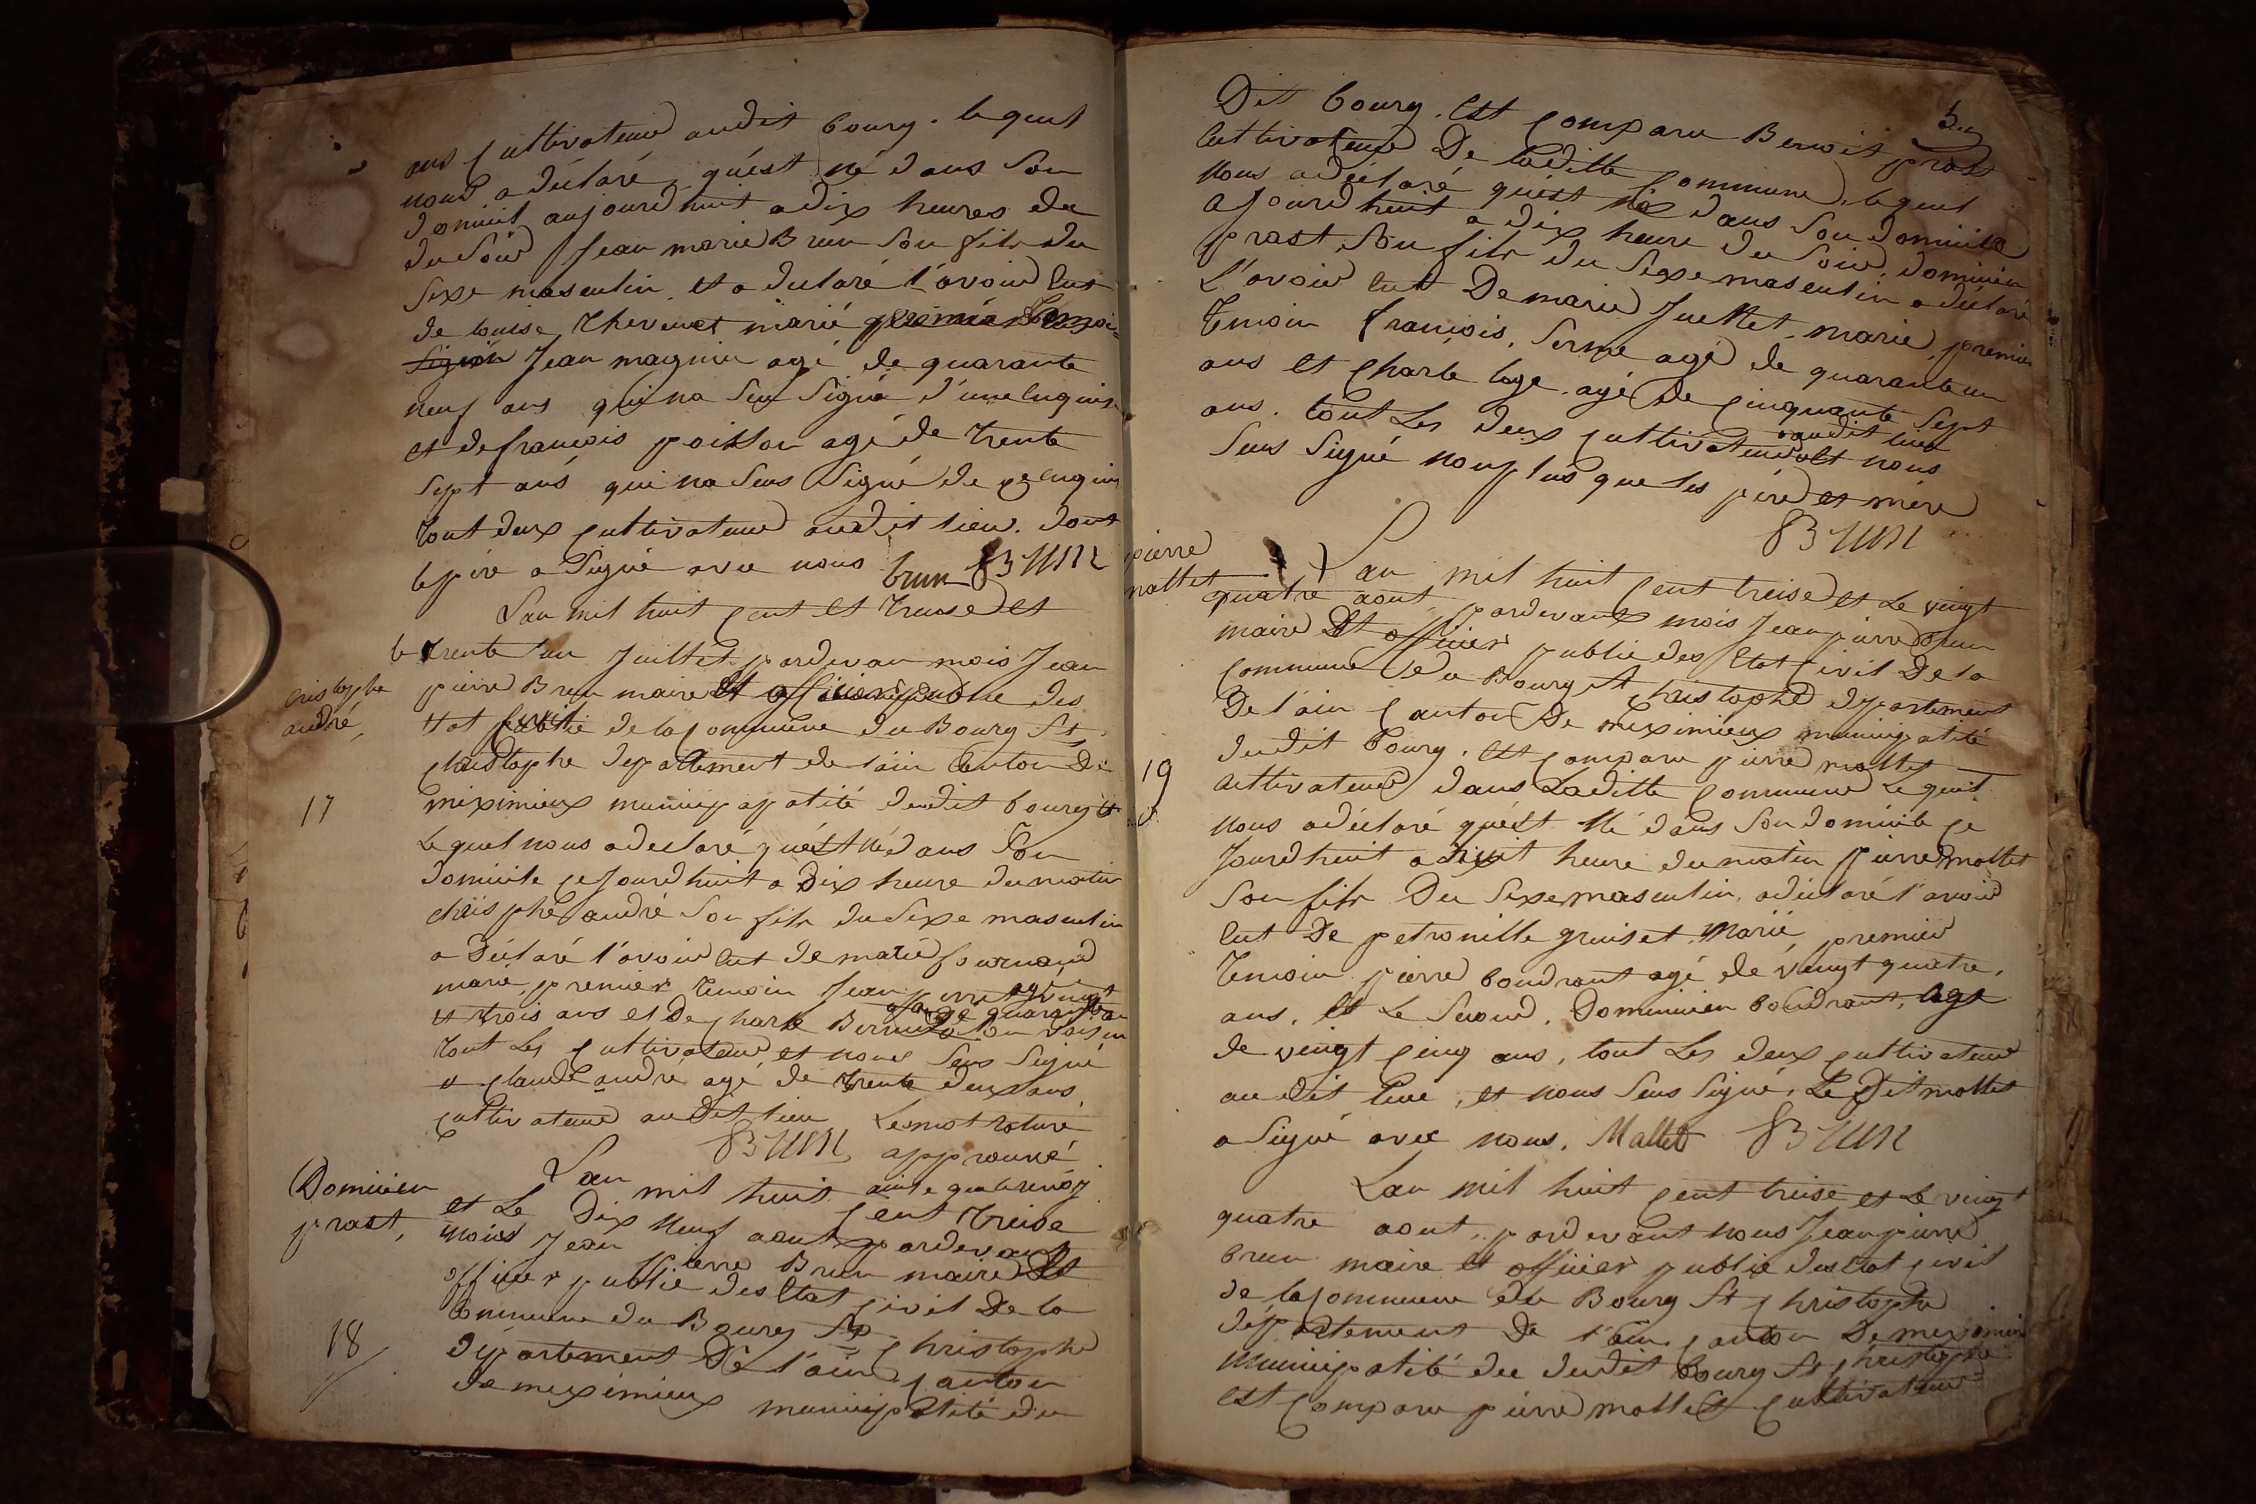 ans cultivateur audit bourg. lequel
nous a déclaré qu'est né dans son
domicil aujourdhuit a dix heures du
du soir Jean marie Brun son fils du
sexe masculin et a déclaré l'avoir eut
de louise thevenet marié
Jean magnin agé de quarante
neuf ans qui na seu signé d'une enquis
et de françois poisson agé de trente
sept ans qui na seus signé de ce enquis
tout deux cultivateur audit lieu. dont
le pére a signé avec nous brun Brun
Lan mil huit cent et treise et
le trente un Juillet pardevan mois Jean
cristophe
andré
pierre Brun maire et officier publie des
etat civil de la commune du Bourg St
christophe département de l'ain canton de
17
meximieux municipapalité dudit bourg
Lequel nous a declaré qu'est né dans son
domicile ce jourdhuit a dix heure du matin
chrisphe andré son fils du sexe masculin
a déclaré l'avoir eut de marie fournand
marié, premier temoin Jean agé vingt
et trois ans et de charle de quarante
tout les cultivateur et nous seus signé
et claude andre agé de trente deux ans
cultivateur audit lieu Le mot roturé
Brun approuvé
Domicien
prast,
Lan mil huit cent treise
et Le Dix neuf aout pardevant
nois Jean pierre Brun maire et
officier publie des etat civil de la
commune du Bourg St christophe
18
département De l'ain canton
de meximieux municipalité du
Dit bourg. est comparu Benoit prast
cultivateur De ladille commune, lequel
nous a déclaré qu'est né dans son domicile
ajourdhuit a dix heure du soir. dominien
prast son fils du sexe masculin a déclaré
l'avoir eut De marie Juellet, marié, premier
temoin françois, serme agé de quarante un
ans et charle loge agé de cinquante sept
ans. tout Les deux cultivateur audit lieu et nous
seus signé nonplus que les pére et mére
Brun
pierre
mollet
Lan mil huit cent treise et Le vingt
quatre aout pardevant mois Jean pierre Brun
maire et officier publie des etat civil De la
commune du Bourg St christophe département
De l'ain canton De meximieux municipalité
dudit bourg. est comparu pierre mollet
19
cultivateur dans Ladille commune Lequel
nous a déclaré qu'est né dans son domicile ce
jourdhuit a huit heure du matin pierre mollet
son fils Du sexe masculin, a déclaré l'avoir
eut De petronille gruiset, marié, premier
temoin pierre boudrant agé de vingt quatre,
ans, et Le second, Dominien boudrant, agé
de vingt cinq ans, tout Les deux cultivateur
au dit lieu, et nous seus signé, Le Dit mollet
a signé avec nous, Mallet Brun
Lan mil huit cent treise et Le vingt
quatre aout, pardevant nous Jean pierre
brun maire et officier publie des etat civil
de la commune du Bourg St christophe
département De l'ain canton De meximieux
municipalité du dudit bourg St christophe
est comparu pierre mollet cultivateur